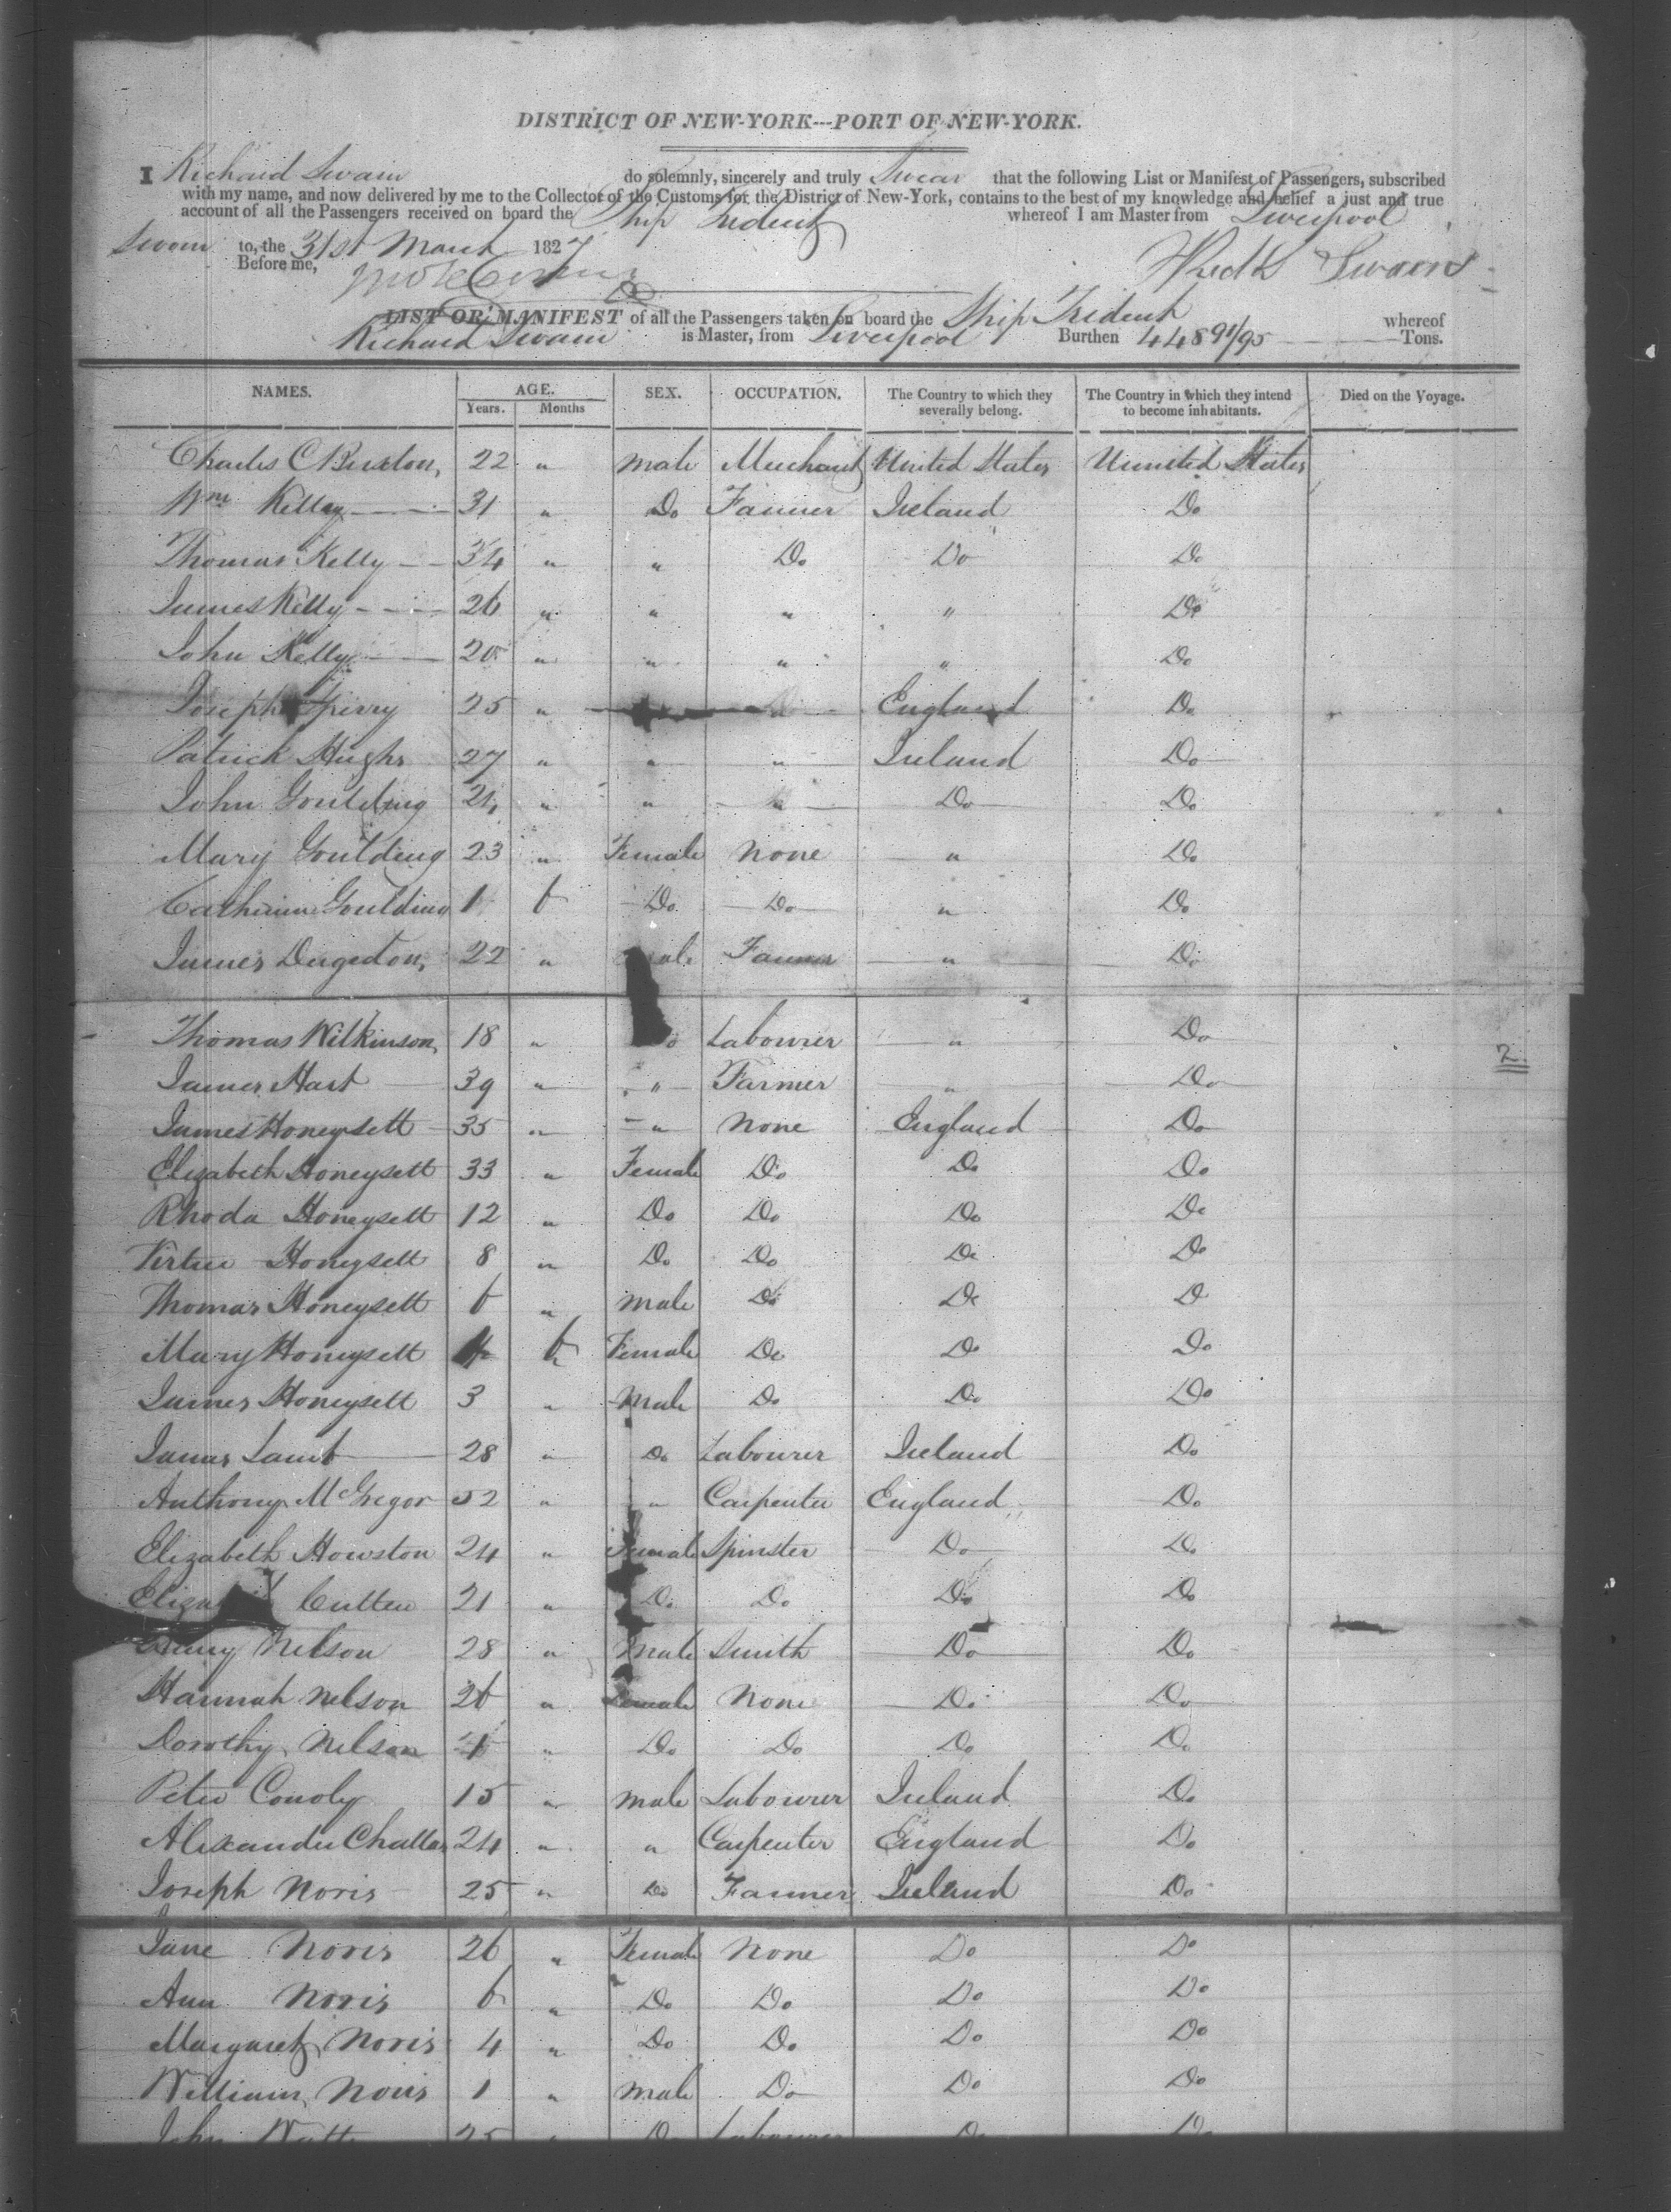 DISTRICT OF NEW-YORK---PORT OF NEW-YORK.
I Richard Swain do solemnly, sincerely and truly Swear that the following List or Manifest of Passengers, subscribed
with my name, and now delivered by me to the Collector of the Customs for the District of New-York, contains to the best of my knowledge and belief a just and true
account of all the Passengers received on board the Ship Trident whereof I am Master from Liverpool
Sworn to, the 31st March 1827
Before me, Richd Swain
LIST OR MANIFEST of all the Passengers taken on board the Ship Trident whereof
Richard Swain is Master, from Liverpool Burthen 448 91/95 Tons.
NAMES. AGE. SEX. OCCUPATION. The Country to which they severally belong. The Country in which they intend to become inhabitants. Died on the Voyage.
Years. Months
Charles C 22 " male Merchant United States Uunited States
Wm Kelly 31 " Do Farmer Ireland Do
Thomas Kelly 34 " " Do Do Do
James Kelly 26 " " " " Do
John Kelly 20 " " " " Do
Joseph Sperry 25 " Do England Do
Patrick Hughs 27 " " " Ireland Do
John Goulding 24 " " " Do Do
Mary Goulding 23 " Female None " Do
Catherine Goulding 1 6 Do Do " Do
James 22 " male Farmer " Do
Thomas Wilkinson, 18 " Do Labourer " Do
James Hart 39 " " Farmer " Do
James Honeysett 35 " " None England Do
Elizabeth Honeysett 33 " Female Do Do Do
Rhoda Honeysett 12 " Do Do Do Do
Virtue Honeysett 8 " Do Do Do Do
Thomas Honeysett 6 " male Do Do Do
Mary Honeysett 4 6 Female Do Do Do
James Honeysett 3 " Male Do Do Do
James Lamb 28 " Do Labourer Ireland Do
Anthony McGregor 52 " " Carpenter England Do
Elizabeth Howston 24 " Female Spinster Do Do
Cutten 21 " Do Do Do Do
Henry Nelson 28 " Male Smith Do Do
Hannah Nelson 26 " Female None Do Do
Dorothy Nelson 1 " Do Do Do Do
Peter Conoly 15 " male Labourer Ireland Do
Alexander 24 " " Carpenter England Do
Joseph Noris 25 " Do Farmer Ireland Do
Jane Noris 26 " Female None Do Do
Ann Noris 6 " Do Do Do Do
Margaret Noris 4 " Do Do Do Do
William Noris 1 " Male Do Do Do
John 25 " Do Labourer Do Do
2